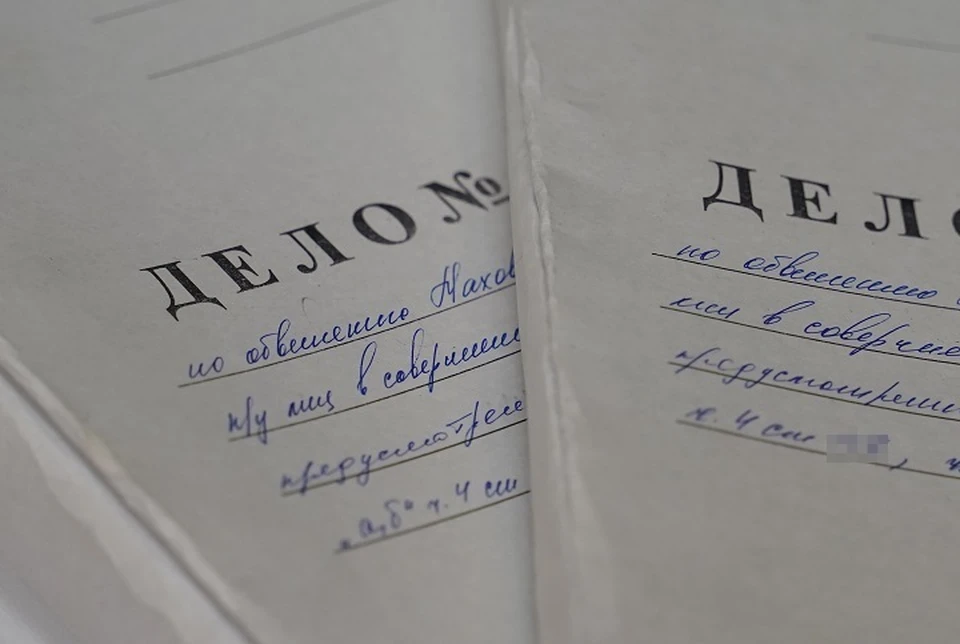 ДЕЛО №
по обвинению Махов
и/у лиц в совершени
предусмотрен
"а,б" ч. 4 ст
ДЕЛО
по обвинению
лиц в соверше
предусмотренн
ч. 4 ст